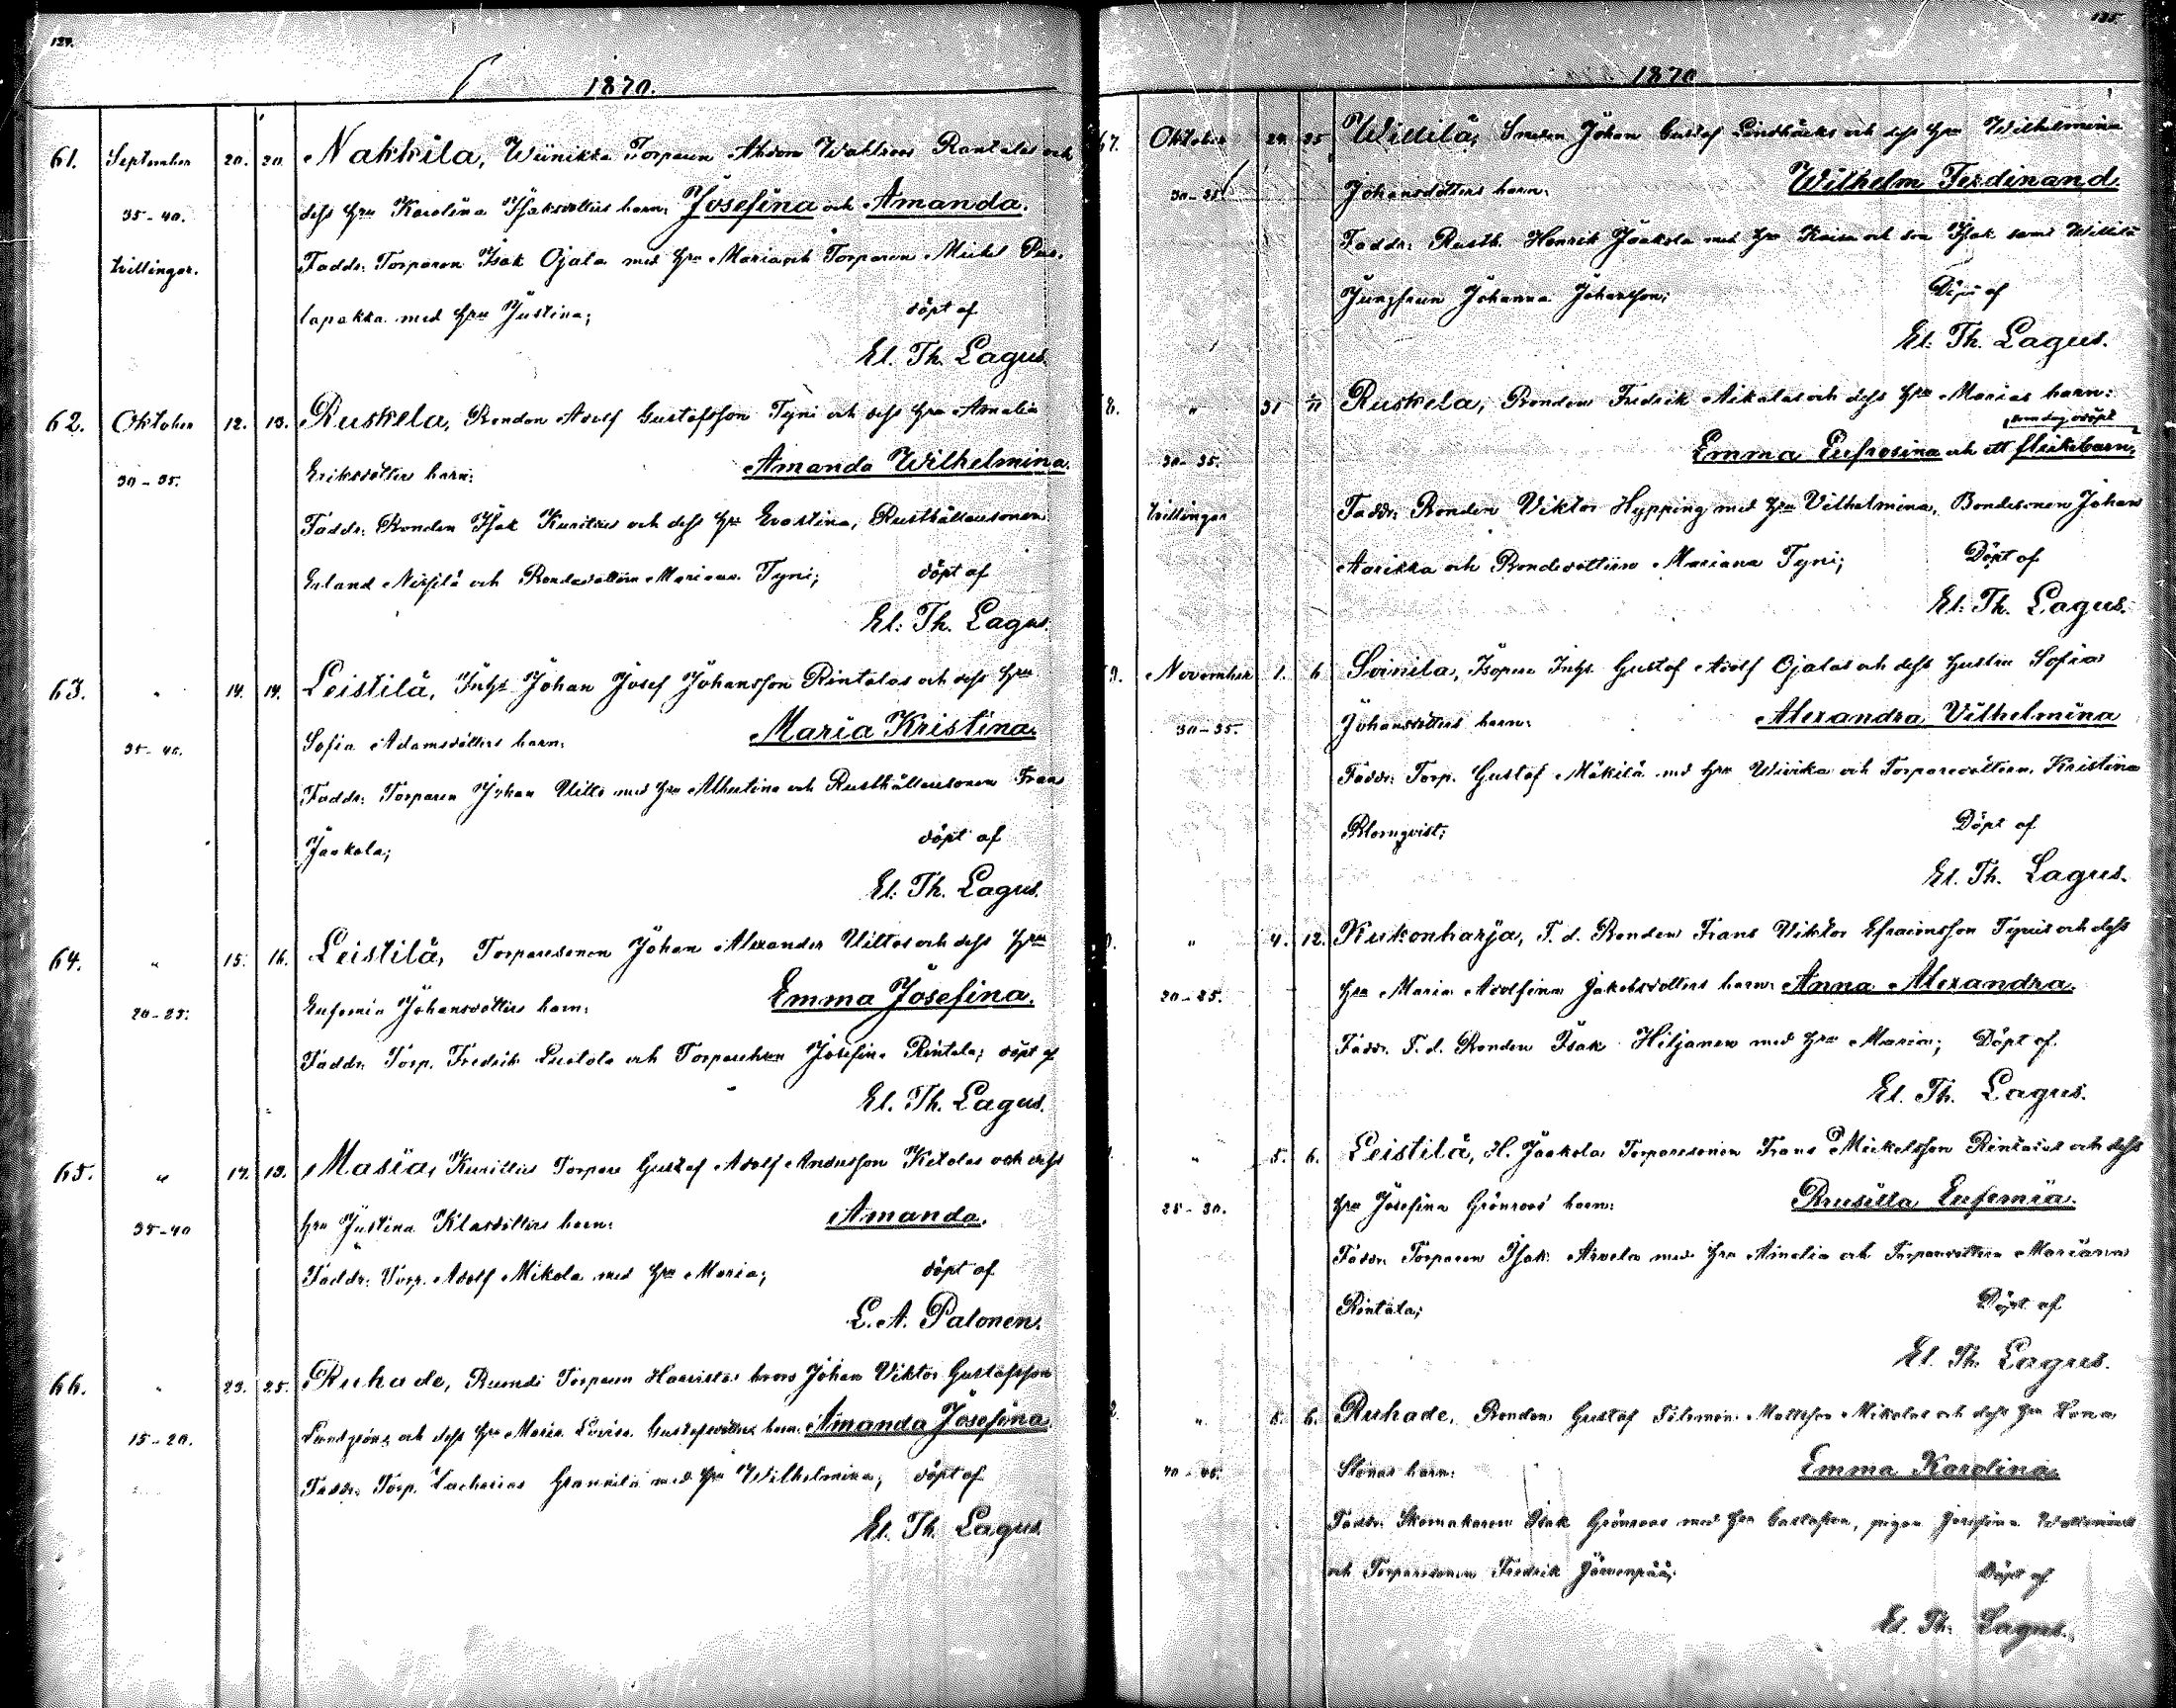 134.
1870.
61. September 20. 20. Nakkila, Wiinikka Torparen Wahlroos Rantalas och
35-40. dess hru Karolina Isaksdotters barn: Josefina och Amanda.
tvillingar. Faddr: Torparen Isak Ojala med hru Maria och Torparen Mickel Pas-
lapakka med hru Justina; döpt af
El. Th. Lagus.
62. Oktober 12. 13. Ruskela, Bonden Adolf Gustafsson Tyni och dess hru Amalia
30-35. Eriksdotters barn: Amanda Wilhelmina.
Faddr: Bonden Isak Kunittus och dess hru Evastina, Rusthållaresonen
Erland Nissilä och Bondedottern Mariana Tyni; döpt af
El. Th. Lagus.
63. " 14. 14. Leistilä, Inhs Johan Josef Johansson Rintalas och dess hru
35-40. Sofia Adamsdotters barn: Maria Kristina.
Faddr: Torparen Johan Uitto med hru Albertina och Rusthållaresonen Frans
Jaakola; döpt af
El. Th. Lagus.
64. " 15. 16. Leistilä, Torparesonen Johan Alexander Uittos och dess hru
20-25. Eufemia Johansdotters barn: Emma Josefina.
Faddr: Torp. Fredrik och Torparehrn Josefina Rintala; döpt af
El. Th. Lagus.
65. " 17. 19. Masia, Kunittus Torpare Gustaf Adolf Andersson Ketolas och dess
35-40 hru Justina Klasdotters barn: Amanda.
Faddr: Torp. Adolf Mikola med hru Maria; döpt af
L. A. Palonen.
66. " 23. 25. Ruhade, Torparen Johan Viktor Gustafsson
15-20. och dess hru Maria Lovisa Gustafsdotters barn: Amanda Josefina.
Faddr: Torp. Zacharias Grannila med hru Wilhelmina; döpt af
El. Th. Lagus.
135.
1870
67. Oktober 24. 25 Willilä, Smeden Johan Gustaf Lindbäcks och dess hru Wilhelmina
30-35 Johansdotters barn: Wilhelm Ferdinand.
Faddr: Rusth. Henrik Jaakola med hru Kaisa och son Isak samt Willilä
Jungfrun Johanna Johansson; Döpt af
El. Th. Lagus.
8. " 31 1/11 Ruskela, Bonden Fredrik Nikolas och dess hru Marias barn:
som dog odöpt
30-35. Emma Eufrosina och ett flickebarn;
tvillingar Faddr: Bonden Viktor Hypping med hru Vilhelmina, Bondesonen Johan
Aarikka och Bondedottern Mariana Tyni; Döpt af
El. Th. Lagus.
9. November 1. 6 Soinila, Inhs Gustaf Adolf Ojalas och dess hustru Sofia
30-35. Johansdotters barn: Alexandra Vilhelmina
Faddr: Torp. Gustaf Mäkilä med hru Wivika och Torparedottern Kristina
Blomqvist; Döpt af
El. Th. Lagus.
" 4. 12. Kukonharja, F. d. Bonden Frans Viktor Efraimsson Tynis och dess
20-25. hru Maria Adolfina Jakobsdotters barn: Anna Alexandra.
Faddr: F. d. Bonden Isak Hiljanen med hru Maria; Döpt af
El. Th. Lagus.
" 5. 6. Leistilä, H. Jaakola Torparesonen Frans Mickelsson Rintalas och dess
25-30. hru Josefina Grönroos barn: Prusilla Eufemia.
Faddr: Torparen Isak Arvela med hru Amalia och Torparedottern Mariana
Rintala; Döpt af
El. Th. Lagus.
2. " 5. 6. Ruhade, Bonden Gustaf Filemon Mattsson Mikolas och dess hru Lona
40-45. Stenas barn: Emma Karolina.
Faddr: Skomakaren Isak Grönroos med hru Gustafva, pigan Josefina
och Torparesonen Fredrik Järvenpää; Döpt af
El. Th. Lagus.